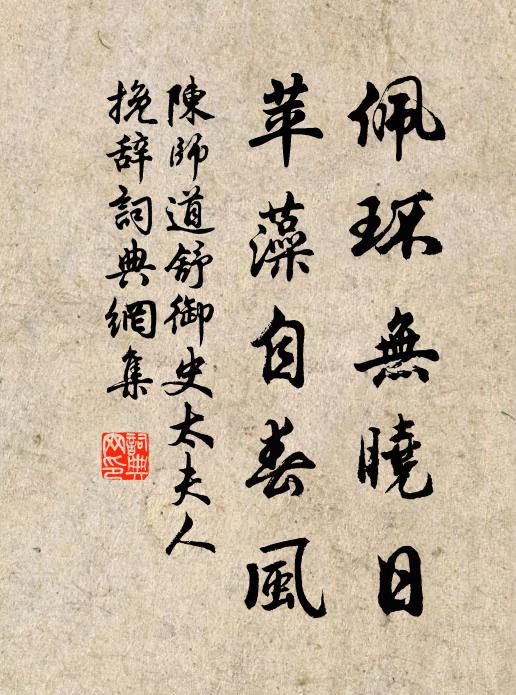 佩环無曉日
苹藻自春風
陳師道舒御史太夫人
挽辞詞典網集
詞典网印